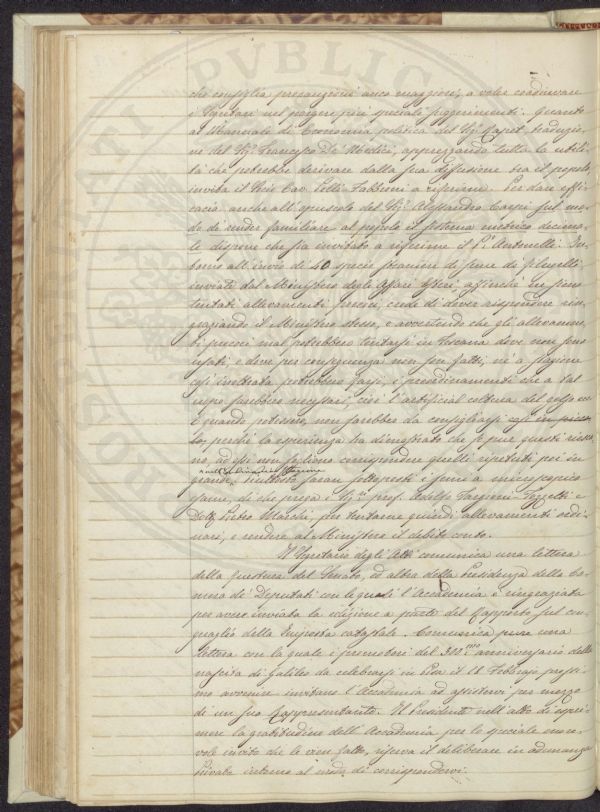 che consiglia precauzioni anco maggiori, a voler coadiuvare
e tentare nel porgere più speciali suggerimenti. Quanto
al Manuale di Economia politica del Sig. Rapet, traduzio,
ne del Sig. Francesco De' Medici, apprezzando tutta la utili,
tà che potrebbe derivare dalla sua diffusione tra il popolo,
invita il Socio Cav. Pelli Fabbroni a riferirne. Per dare effi,
cacia anche all'opuscolo del Sig. Alessandro Carpi sul mo,
do di render familiare al popolo il sistema metrico decima,
le dispone che sia invitato a riferirne il P. Antonelli. In,
torno all'invio di 40 specie straniere di seme di filugelli
inviate dal Ministero degli Affari Esteri, affinchè ne siano
tentati allevamenti precoci, crede di dover rispondere rin,
graziando il Ministero stesso, e avvertendo che gli allevamen,
ti precoci mal potrebbero tentarsi in Toscana dove non sono
usati e dove per conseguenza non son fatti, nè a stagione
così inoltrata potrebbero farsi, i preordinamenti che a tal
uopo sarebbero necessari, cioè l'artificial coltura del gelso ec.
E quando potessero, non sarebbe da consigliarsi
perchè la esperienza ha dimostrato che se pure questi riesco,
no, ad essi non sogliono corrispondere quelli ripetuti poi in
nell'ordinaria stagione
grande; piuttosto saran sottoposti i semi a microscopico
esame, di che prega i Sig.ri prof. Adolfo Targioni-Tozzetti e
Dott. Pietro Marchi, per tentarne quindi allevamenti ordi,
nari, e rendere al Ministero il debito conto.
Il Segretario degli Atti comunica una lettera
della questura del Senato, ed altra della Presidenza della Ca,
mera de' Deputati con le quali l'Accademia è ringraziata
per avere inviata la edizione a parte del Rapporto sul con,
guaglio della Imposta catastale. Comunica pure una
lettera con la quale i promotori del 300.mo anniversario della
nascita di Galileo da celebrarsi in Pisa il 18 Febbrajo prossi,
mo avvenire invitano l'Accademia ad assistervi per mezzo
di un suo Rappresentante. Il Presidente nell'atto di espri,
mere la gratitudine dell'Accademia per lo speciale onore,
vole invito che le vien fatto, riserva il deliberare in adunanza
privata intorno al modo di corrispondervi.